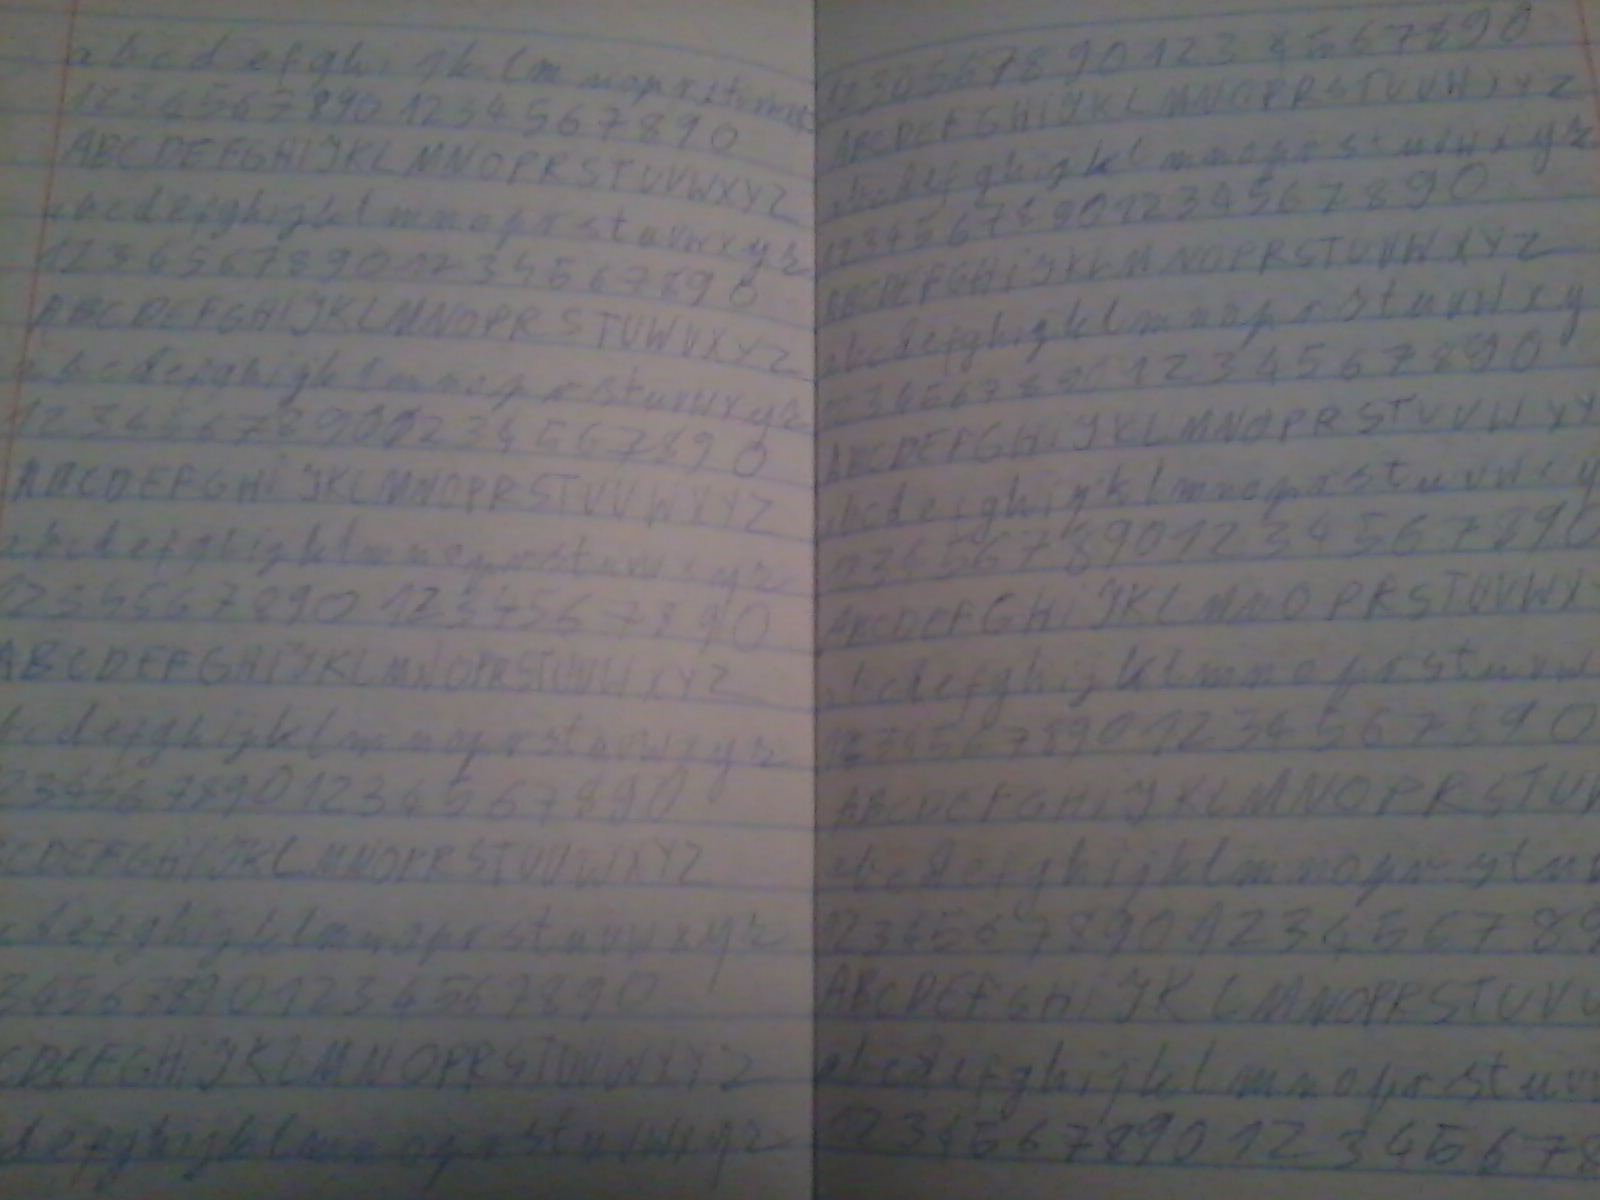 abcdefghijklmnoprstuvwxyz
12345678901234567890
ABCDEFGHiJKLMNOPRSTUVWXYZ
abcdefghijklmnoprstuvwxyz
12345678901234567890
ABCDEFGHIJKLMNOPRSTUWVXYZ
abcdefghijklmnoprstuvwxyz
12345678901234567890
ABCDEFGHiJKLMNOPRSTUVWXYZ
abcdefghijklmnoprstuvwxyz
12345678901234567890
ABCDEFGHiJKLMNOPRSTUVWXYZ
bcdefghijklmnoprstuvwxyz
2345678901234567890
CDEFGHIJKLMNOPRSTUVWXYZ
cdefghijklmnoprstuvwxyz
345678901234567890
CDEFGHiJKLMNOPRSTUVWXYZ
defghijklmnoprstuvwxyz
12305678901234567890
ABCDEFGHiJKLMNOPRSTUVWXYZ
abcdefghijklmnoprstuvwxyz
12345678901234567890
ABCDEFGHiJKLMNOPRSTUVWXYZ
abcdefghijklmnoprstuvwxy
12345678901234567890
ABCDEFGHiJKLMNOPRSTUVWXY
abcdefghijklmnoprstuvwxy
12345678901234567890
ABCDEFGHiJKLMNOPRSTUVWX
abcdefghijklmnoprstuvw
12345678901234567890
ABCDEFGHiJKLMNOPRSTUV
abcdefghijklmnoprstu
1234567890123456789
ABCDEFGHiJKLMNOPRSTUVW
abcdefghijklmnoprstuv
123456789012345678